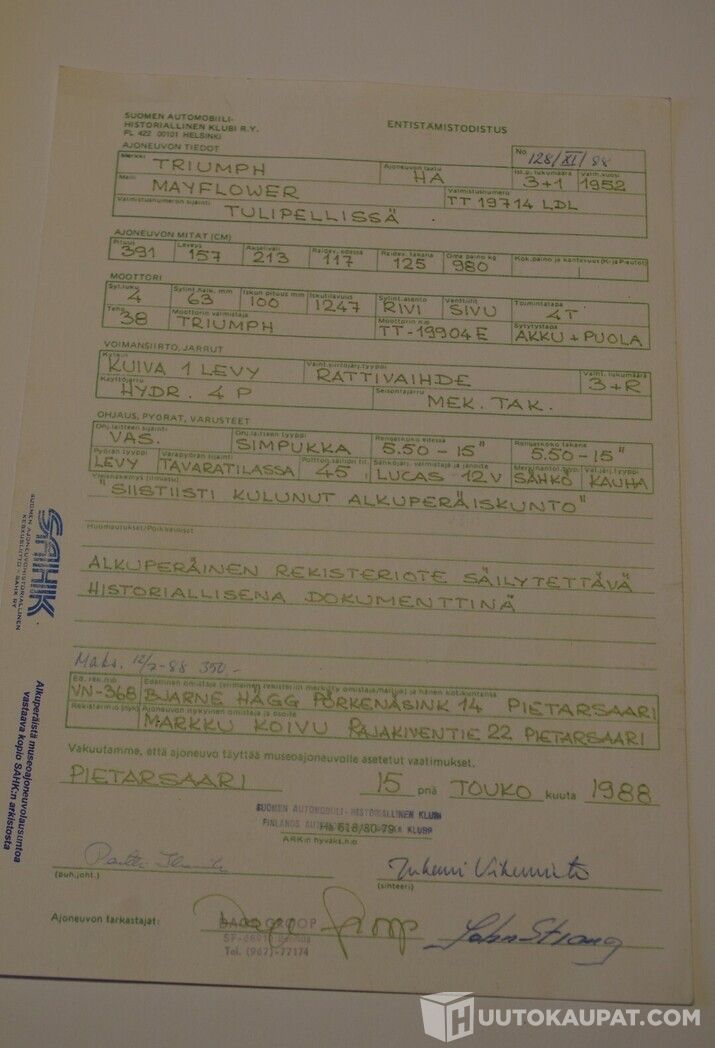 SUOMEN AUTOMOBIILI-
HISTORIALLINEN KLUBI R.Y.
PL 422 00101 HELSINKI
ENTISTÄMISTODISTUS
AJONEUVON TIEDOT
No 128/XI/88
Merkki TRIUMPH Ajoneuvon laatu HA Ist.p. lukumäärä 3+1 Valm.vuosi 1952
Malli MAYFLOWER Valmistusnumero TT 19714 LDL
Valmistusnumeron sijainti TULIPELLISSÄ
AJONEUVON MITAT (CM)
Pituus 391 Leveys 157 Akseliväli 213 Raidev. edessä 117 Raidev. takana 125 Oma paino kg 980 Kok.paino ja kantavuus (K- ja P-autot)
MOOTTORI
Syl.luku 4 Sylint.halk. mm 63 Iskun pituus mm 100 Iskutilavuus 1247 Sylint.asento RIVI Venttiilit SIVU Toimintatapa 4T
Teho 38 Moottorin valmistaja TRIUMPH Moottorin n:o TT-19904E Sytytystapa AKKU + PUOLA
VOIMANSIIRTO, JARRUT
Kytkin KUIVA 1 LEVY Vaiht.siirtojärj.tyyppi RATTIVAIHDE Vaiht. lukumäärä 3+R
Käyttöjarru HYDR. 4 P Seisontajarru MEK. TAK.
OHJAUS, PYÖRÄT, VARUSTEET
Ohj.laitteen sijainti VAS. Ohj.laitteen tyyppi SIMPUKKA Rengaskoko edessä 5.50-15" Rengaskoko takana 5.50-15"
Pyörän tyyppi LEVY Varapyörän sijainti TAVARATILASSA Polttog.säiliön til. 45 Sähköjärj. valmistaja ja jännite LUCAS 12V SÄHKÖ KAUHA
Yleisnäkemys (ilmiasu) "SIISTIISTI KULUNUT ALKUPERÄISKUNTO"
Huomautukset/Poikkeukset
ALKUPERÄINEN REKISTERIOTE SÄILYTETTÄVÄ
HISTORIALLISENA DOKUMENTTINA
Maks. 12/7-88 350.-
Ed. rek.n:o VN-368 Edellinen omistaja (viimeinen rekisteriin merkitty omistaja/haltija) ja hänen kotikuntansa BJARNE HÄGG PÖRKENÄSINK 14 PIETARSAARI
Rekisterin:o (nyk) Ajoneuvon nykyinen omistaja ja osoite MARKKU KOIVU RAJAKIVENTIE 22 PIETARSAARI
Vakuutamme, että ajoneuvo täyttää museoajoneuvolle asetetut vaatimukset.
PIETARSAARI 15 pnä TOUKO kuuta 1988
SUOMEN AUTOMOBIILI-HISTORIALLINEN KLUBI
FINLANDS KLUBB
Hb 618/80-79
ARK:n hyväks.n:o
(puh.joht.)
(sihteeri)
Ajoneuvon tarkastajat:
Tel. (967)-77174
SAHK
SUOMEN AJONEUVOHISTORIALLINEN
KESKUSLIITTO - SAHK RY
Alkuperäistä museoajoneuvolausuntoa
vastaava kopio SAHK:n arkistosta
HUUTOKAUPAT.COM